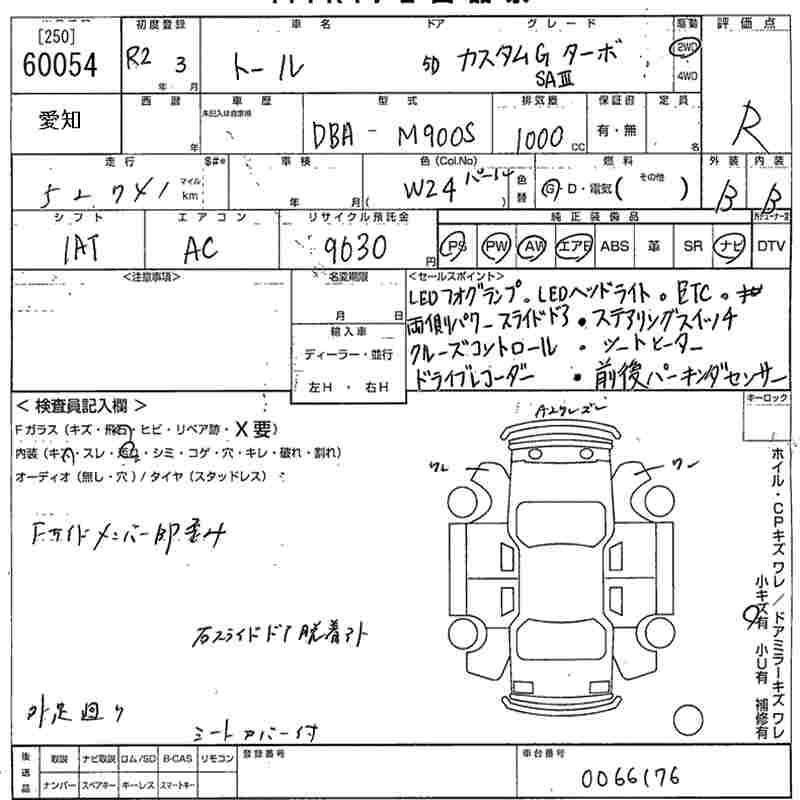 [250]
60054
初度登録
R2 3
年 月
車名
トール
ドア
5D
グレード
カスタムG ターボ
SAⅢ
駆動
2WD
4WD
評価点
R
愛知
西暦
年
車歴
未記入は自家用
型式
DBA - M900S
排気量
1000 cc
保証書
有・無
定員
名
走行
52,741
マイル
km
S#*
車検
年 月
色 (Col.No)
W24 パール
( )
色替
燃料
G・D・電気( その他 )
外装
B
内装
B
シフト
1AT
エアコン
AC
リサイクル預託金
9630
円
純正装備品
PS PW AW エアB ABS 革 SR ナビ DTV
<注意事項>
名変期限
月 日
輸入車
ディーラー・並行
左H ・ 右H
<セールスポイント>
LEDフォグランプ。LEDヘッドライト。ETC。
両側パワースライドドア・ステアリングスイッチ
クルーズコントロール ・ シートヒーター
ドライブレコーダー ・ 前後パーキングセンサー
< 検査員記入欄 >
Fガラス (キズ・飛石・ヒビ・リペア跡・X要)
内装 (キズ・スレ・汚れ・シミ・コゲ・穴・キレ・破れ・割れ)
オーディオ (無し・穴) / タイヤ (スタッドレス)
キーロック
ワレ
ワレ
Fサイドメンバー部歪み
右スライドドア脱着アト
外足廻り
シートカバー付
ホイル・CPキズ ワレ / ドアミラーキズ ワレ
小キズ有 小U有 補修有
後送品
取説 ナビ取説 ロム/SD B-CAS リモコン
ナンバー スペアキー キーレス スマートキー
登録番号
車台番号
0066176